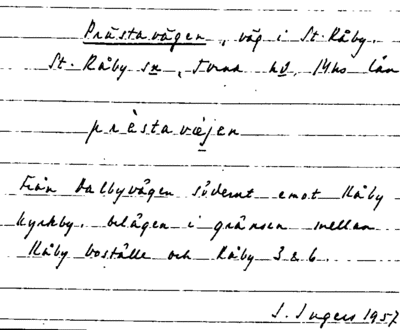 Prästavägen, väg i St. Råby.
St. Råby sn, Torna hd, Mhs län
prèstavæjen
Från Dalbyvägen söderut emot Råby
kyrkby. belägen i gränsen mellan
Råby boställe och Råby 3 & 6.
I. Ingers 1957